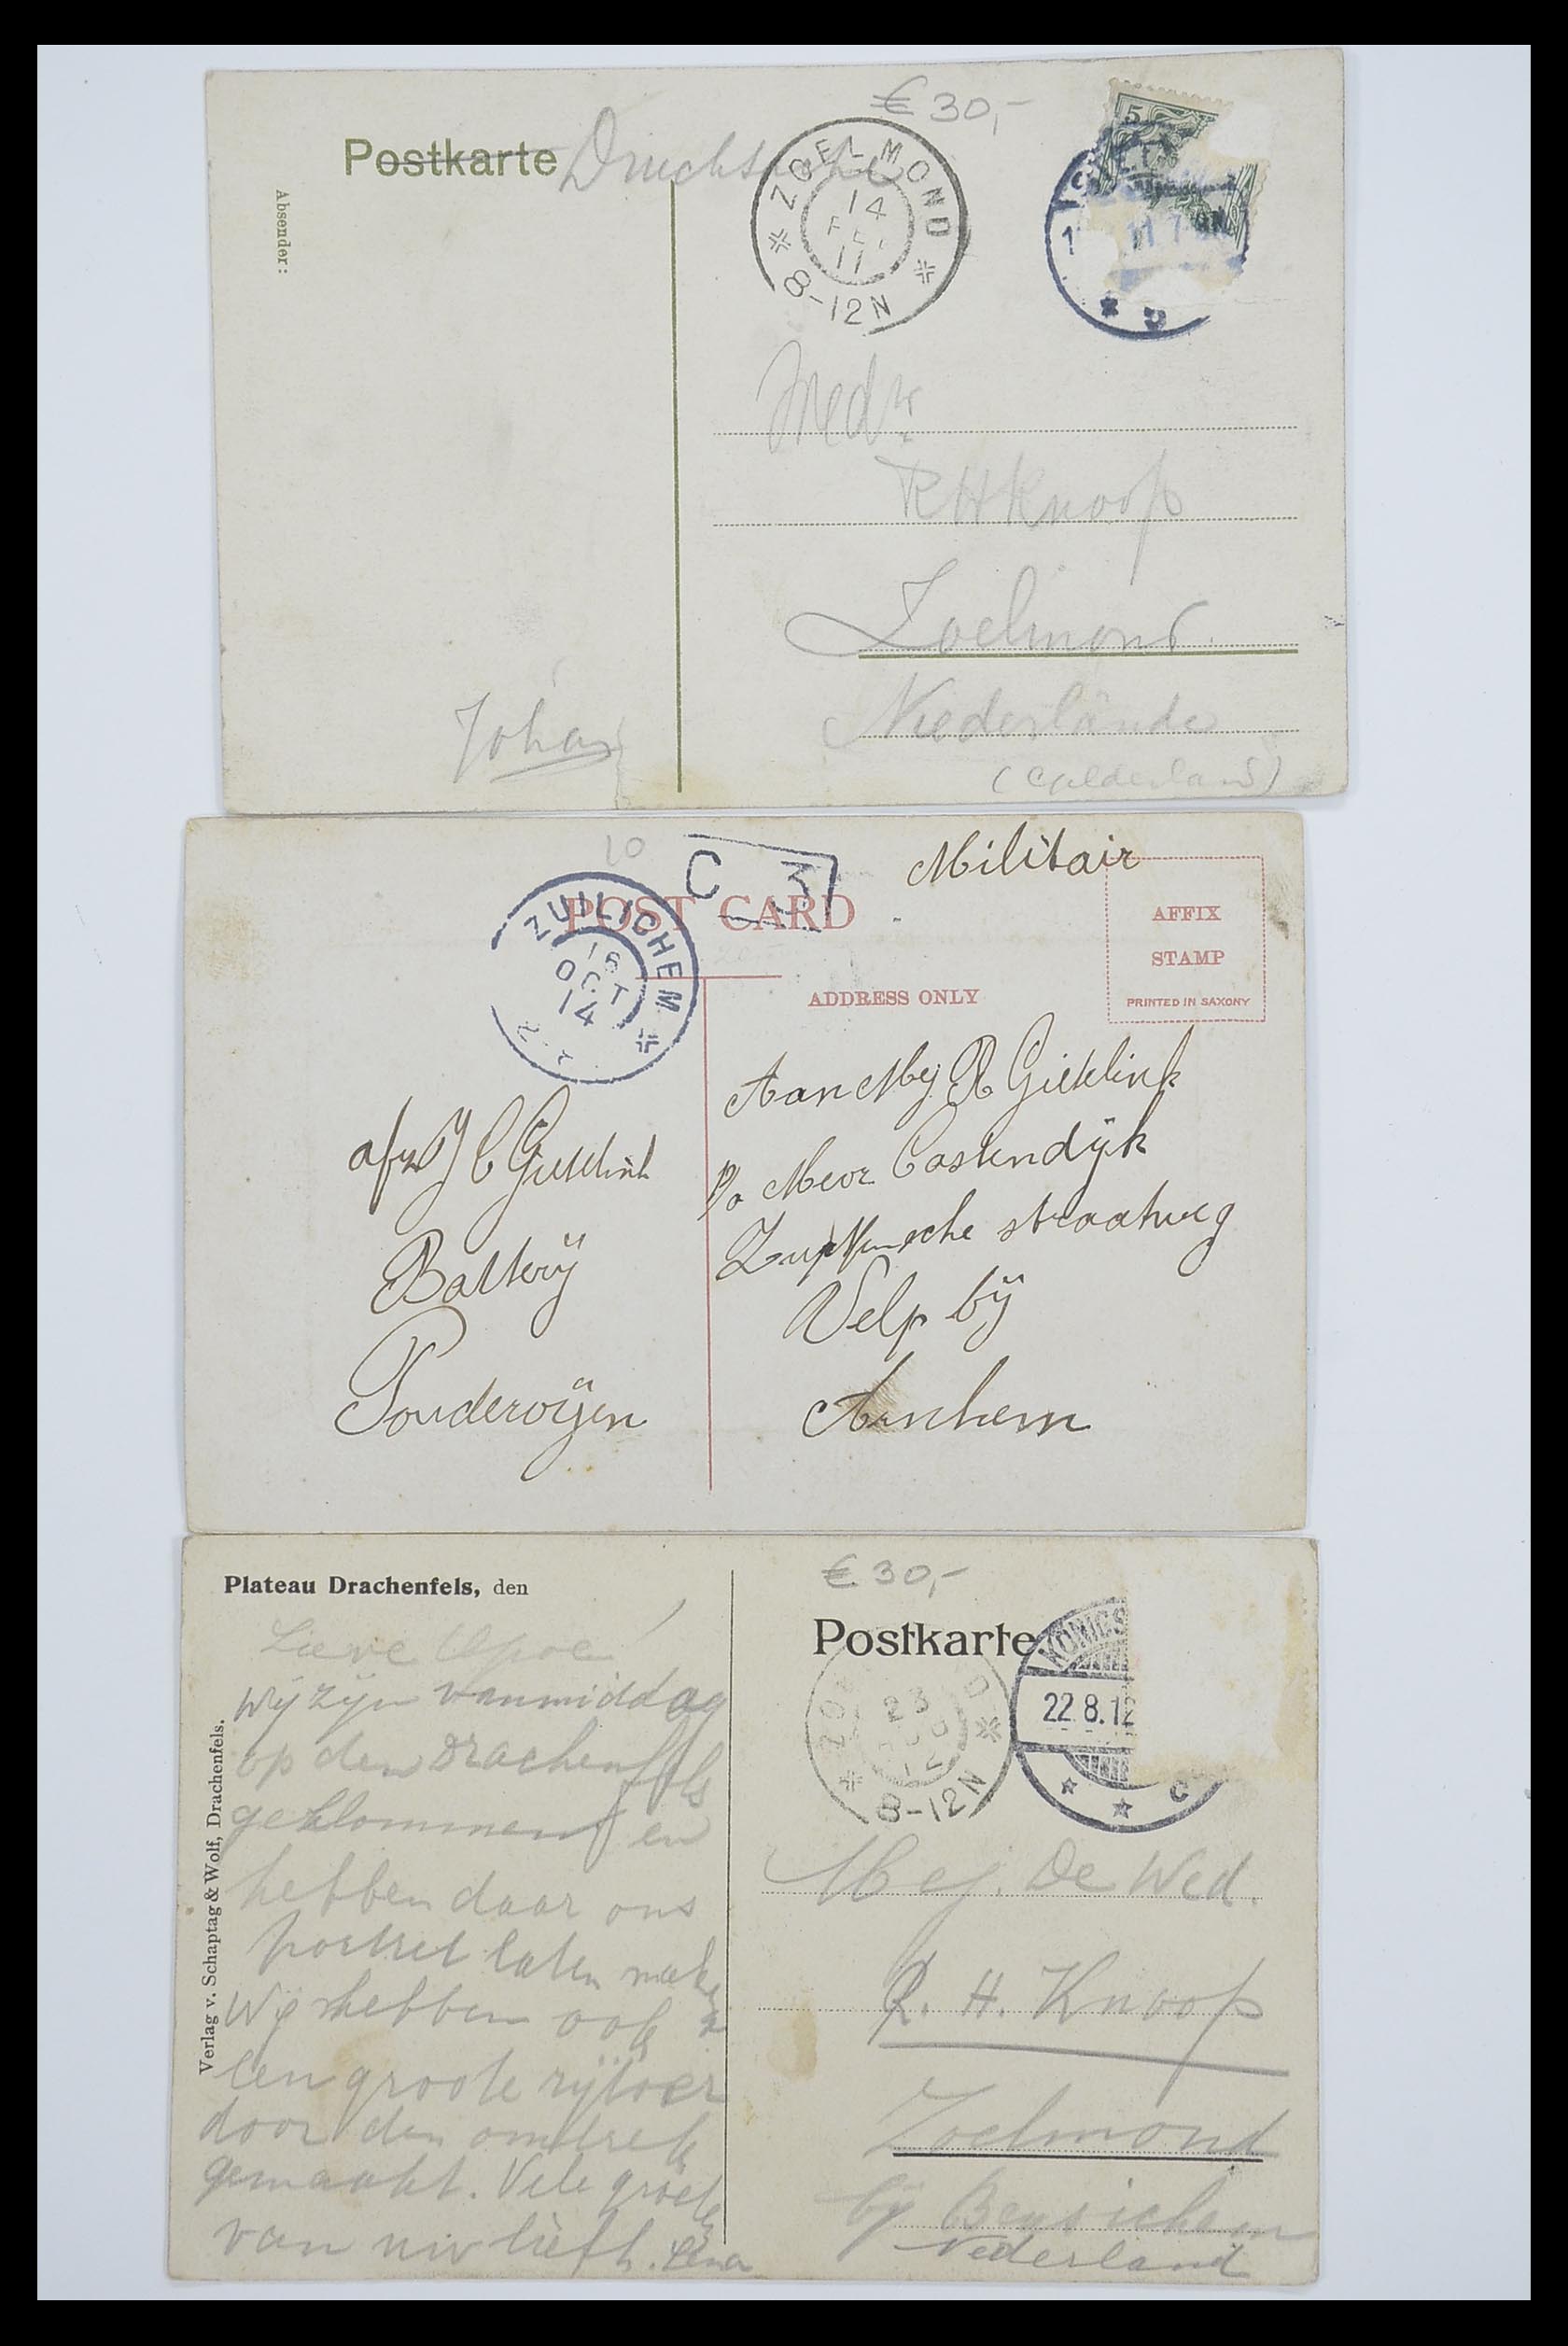 € 30,-
Postkarte Drucksache
Absender:
ZOELMOND
14
11
8-12N
5
11.7-8N
Medr.
RHKnoop
Zoelmond.
Niederlande
(Gelderland)
Johan
10
C 3
Militair
POST CARD
ZUILICHEM
16
OCT
14
AFFIX
STAMP
PRINTED IN SAXONY
ADDRESS ONLY
Aan Mej R Gietelink
p/a Mevr Oostendijk
Zutphensche straatweg
Velp bij
Arnhem
afz J C Gietelink
Batterij
Poederoijen
Plateau Drachenfels, den
Lieve Opoe!
Wij zijn vanmiddag
op den Drachenfels
geklommen en
hebben daar ons
portret laten maken
Wij hebben ook
een groote rijtoer
door den omtrek
gemaakt. Vele groeten
van uw liefh. Lena
Verlag v. Schaptag & Wolf, Drachenfels.
€ 30,-
Postkarte
KÖNIGS
22.8.12
c
ZO D
23
12
8-12N
Mej. De Wed.
R. H. Knoop
Zoelmond
bij Beusichem
Nederland